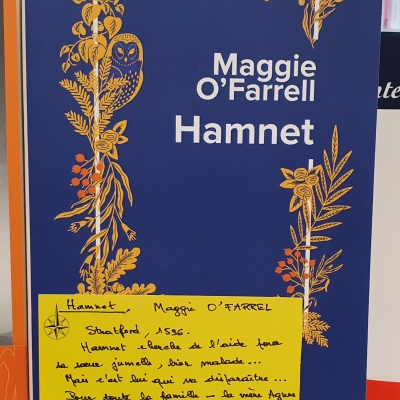 Maggie
O'Farrell
Hamnet
nte
Hamnet, Maggie O'FARREL
Stratford, 1596.
Hamnet cherche de l'aide pour
sa sœur jumelle, bien malade...
Mais c'est lui qui va disparaître...
Pour toute la famille - la mère Agnes